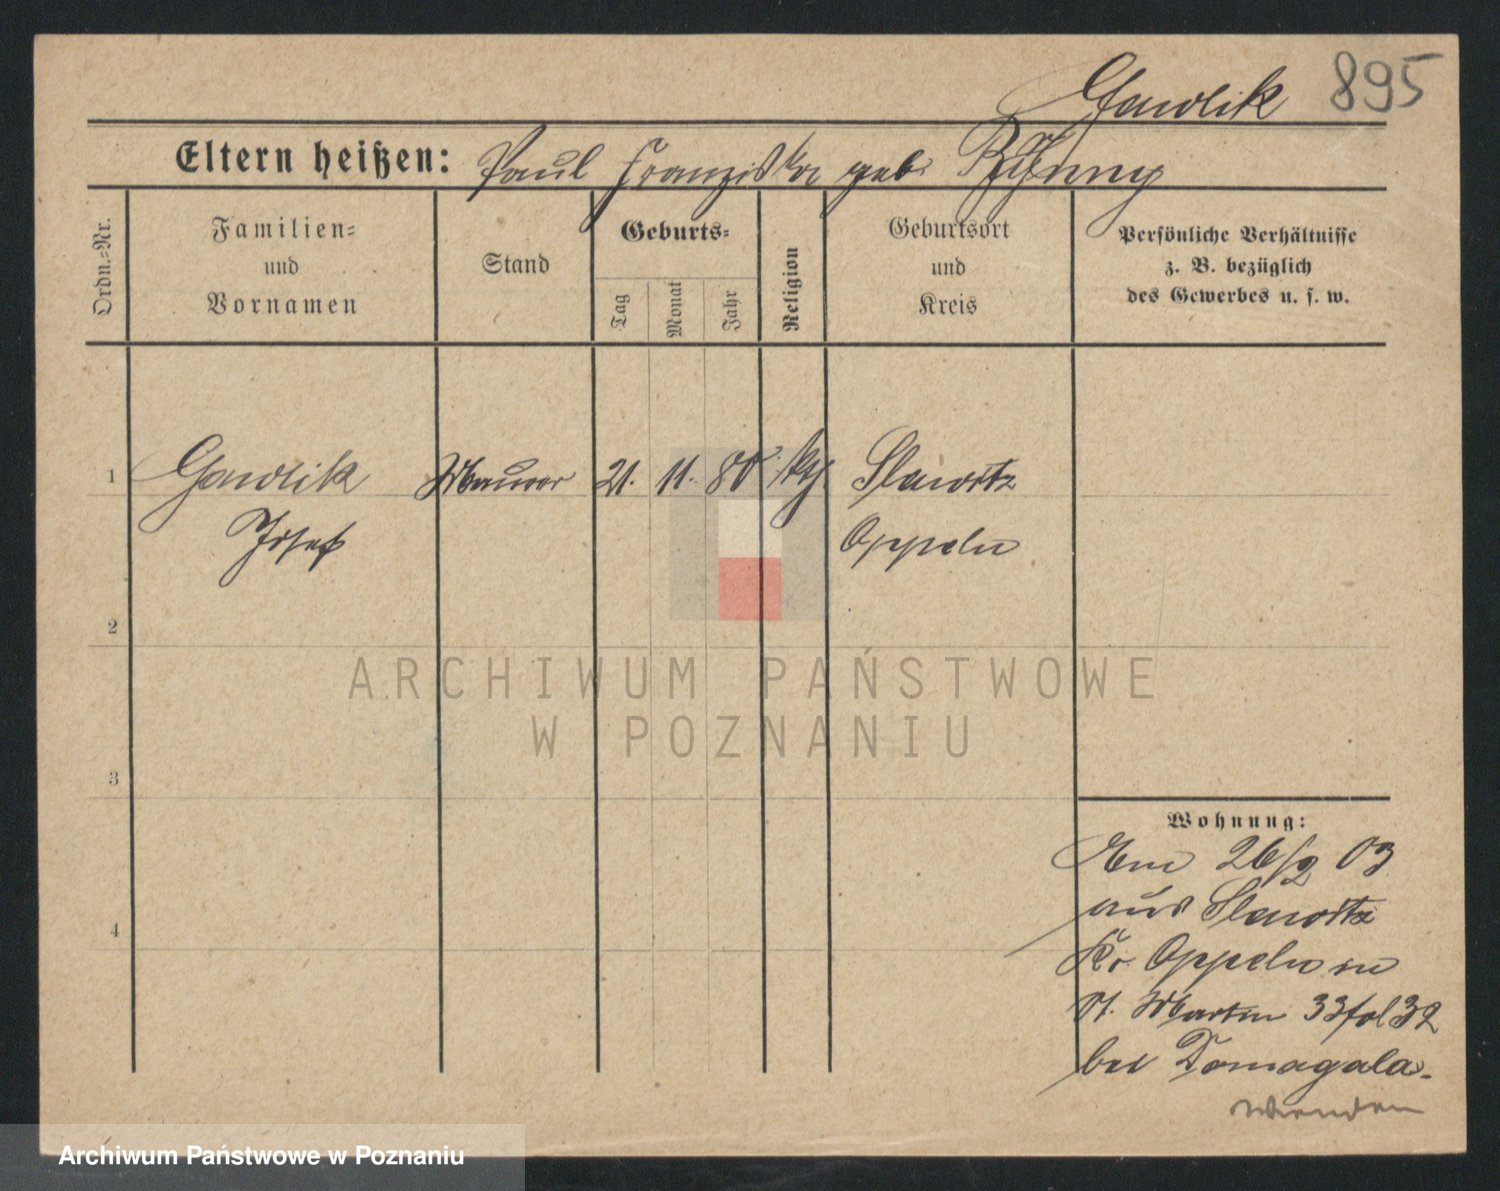 Gawlik 895
Eltern heißen: Paul Franziska geb.
Ordn.=Nr.
Familien=
und
Vornamen
Stand
Geburts=
Tag
Monat
Jahr
Religion
Geburtsort
und
Kreis
Persönliche Verhältnisse
z. B. bezüglich
des Gewerbes u. s. w.
1 Gawlik Maurer 21. 11. 80 kth Slawitz
Josef Oppeln
2
ARCHIWUM PAŃSTWOWE
W POZNANIU
3
Wohnung:
Am 26/2 03
aus Slawitz
4
Kr. Oppeln in
St. Martin 33 fol 32
bei Domagala.
wenden
Archiwum Państwowe w Poznaniu